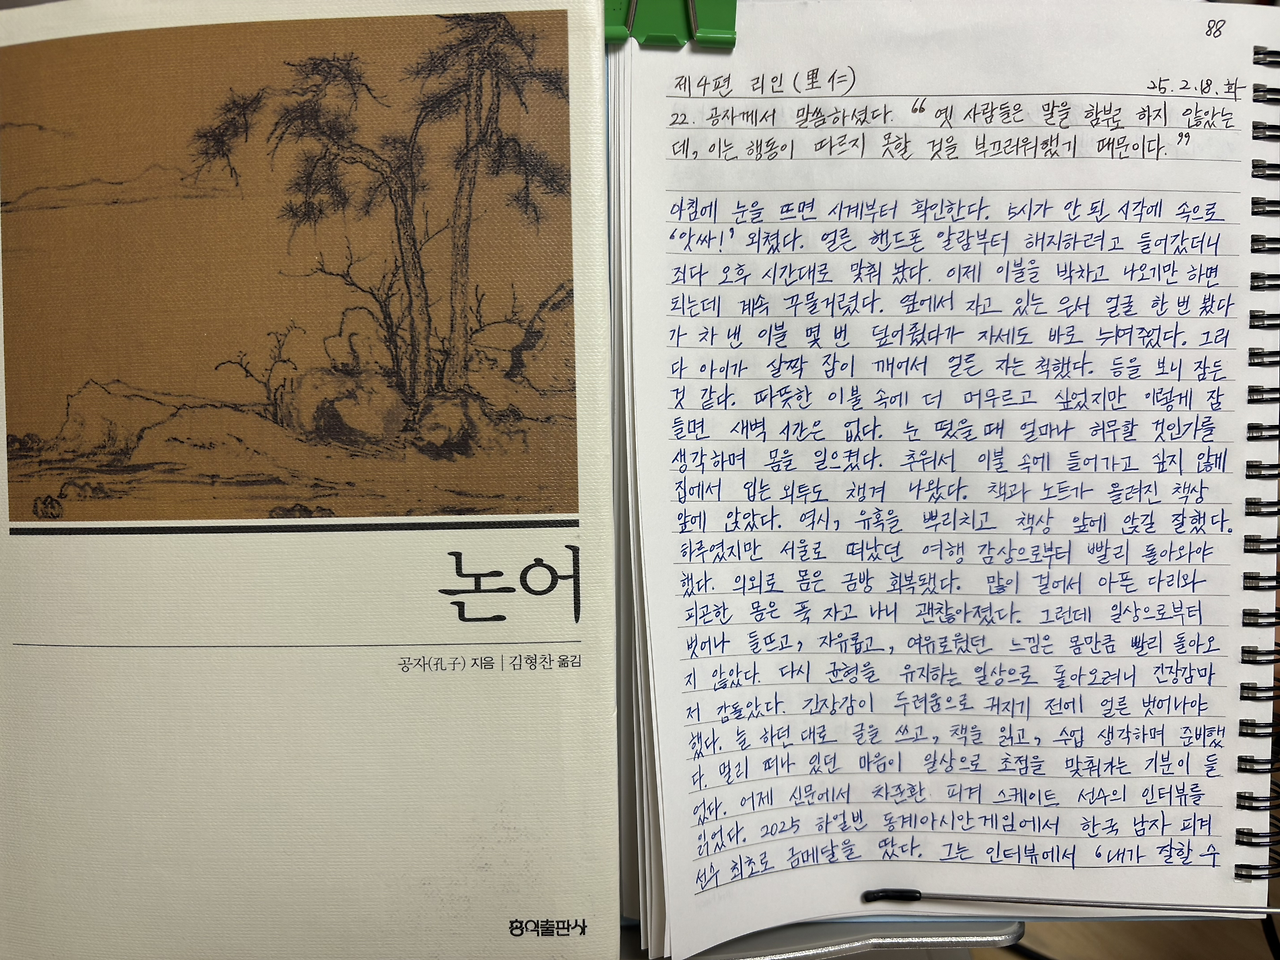 논어
공자(孔子) 지음 | 김형찬 옮김
홍익출판사
88
제4편 리인(里仁) 25.2.18.화
22. 공자께서 말씀하셨다. “옛 사람들은 말을 함부로 하지 않았는
데, 이는 행동이 따르지 못할 것을 부끄러워했기 때문이다.”
아침에 눈을 뜨면 시계부터 확인한다. 5시가 안 된 시각에 속으로
‘앗싸!’ 외쳤다. 얼른 핸드폰 알람부터 해지하려고 들어갔더니
죄다 오후 시간대로 맞춰 놨다. 이제 이불을 박차고 나오기만 하면
되는데 계속 꾸물거렸다. 옆에서 자고 있는 우서 얼굴 한 번 봤다
가 차 낸 이불 몇 번 덮어줬다가 자세도 바로 뉘여주었다. 그러
다 아이가 살짝 잠이 깨어서 얼른 자는 척했다. 등을 보니 잠든
것 같다. 따뜻한 이불 속에 더 머무르고 싶었지만 이렇게 잠
들면 새벽 시간은 없다. 눈 떴을 때 얼마나 허무할 것인가를
생각하며 몸을 일으켰다. 추워서 이불 속에 들어가고 싶지 않게
집에서 입는 외투도 챙겨 나왔다. 책과 노트가 올려진 책상
앞에 앉았다. 역시, 유혹을 뿌리치고 책상 앞에 앉길 잘했다.
하루였지만 서울로 떠났던 여행 감상으로부터 빨리 돌아와야
했다. 의외로 몸은 금방 회복됐다. 많이 걸어서 아픈 다리와
피곤한 몸은 푹 자고 나니 괜찮아졌다. 그런데 일상으로부터
벗어나 들뜨고, 자유롭고, 여유로웠던 느낌은 몸만큼 빨리 돌아오
지 않았다. 다시 균형을 유지하는 일상으로 돌아오려니 긴장감마
저 감돌았다. 긴장감이 두려움으로 커지기 전에 얼른 벗어나야
했다. 늘 하던 대로 글을 쓰고, 책을 읽고, 수업 생각하며 준비했
다. 멀리 떠나 있던 마음이 일상으로 초점을 맞춰가는 기분이 들
었다. 어제 신문에서 차준환 피겨 스케이트 선수의 인터뷰를
읽었다. 2025 하얼빈 동계아시안게임에서 한국 남자 피겨
선수 최초로 금메달을 땄다. 그는 인터뷰에서 ‘내가 잘할 수